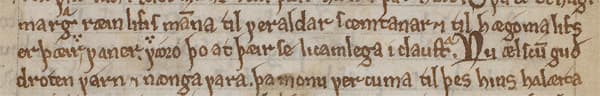 margr ræan lifis manna til veraldar scemtanar ⁊ til hægoma lifs
er þæir vaner voro þo at þæir se licamlega i claustra. Nu ælscum guð
droten varn ⁊ næonga vara. þa monu ver cuma til þes hins halærta